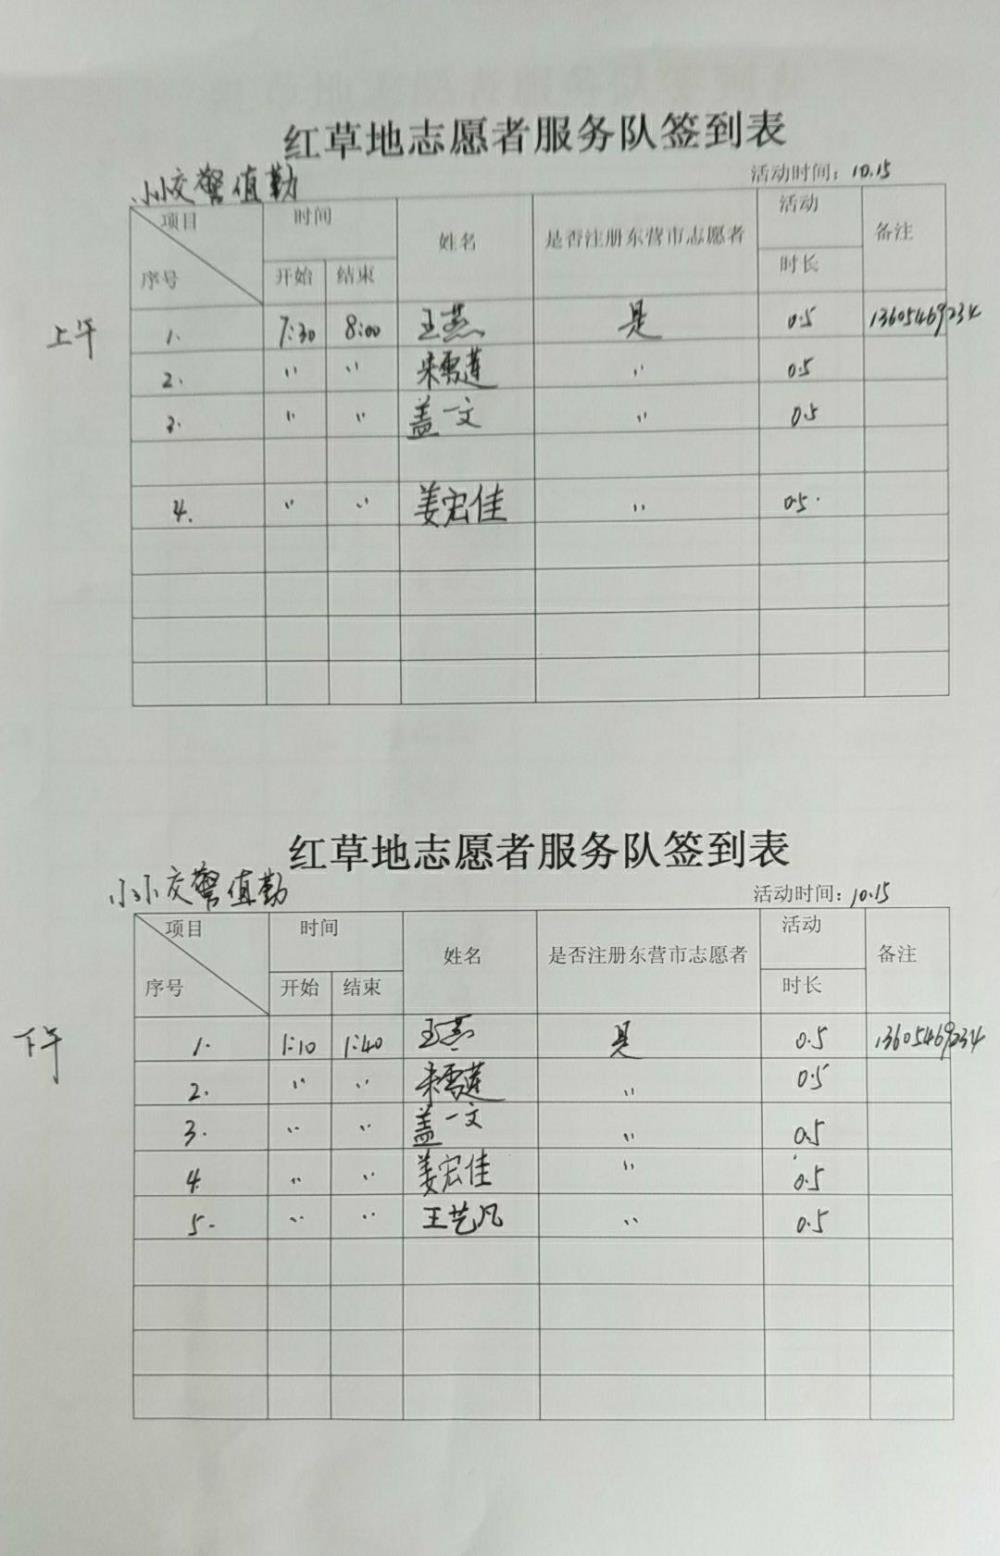 红草地志愿者服务队签到表
小小交警值勤
活动时间：10.15
项目 时间 姓名 是否注册东营市志愿者 活动 备注
序号 开始 结束 时长
上午
1. 7:30 8:00 王燕 是 0.5 13605469234
2. 〃 〃 宋雪莲 〃 0.5
3. 〃 〃 盖一文 〃 0.5
4. 〃 〃 姜宏佳 〃 0.5
红草地志愿者服务队签到表
小小交警值勤
活动时间：10.15
项目 时间 姓名 是否注册东营市志愿者 活动 备注
序号 开始 结束 时长
下午
1. 1:10 1:40 王燕 是 0.5 13605469234
2. 〃 〃 宋雪莲 〃 0.5
3. 〃 〃 盖一文 〃 0.5
4. 〃 〃 姜宏佳 〃 0.5
5. 〃 〃 王艺凡 〃 0.5